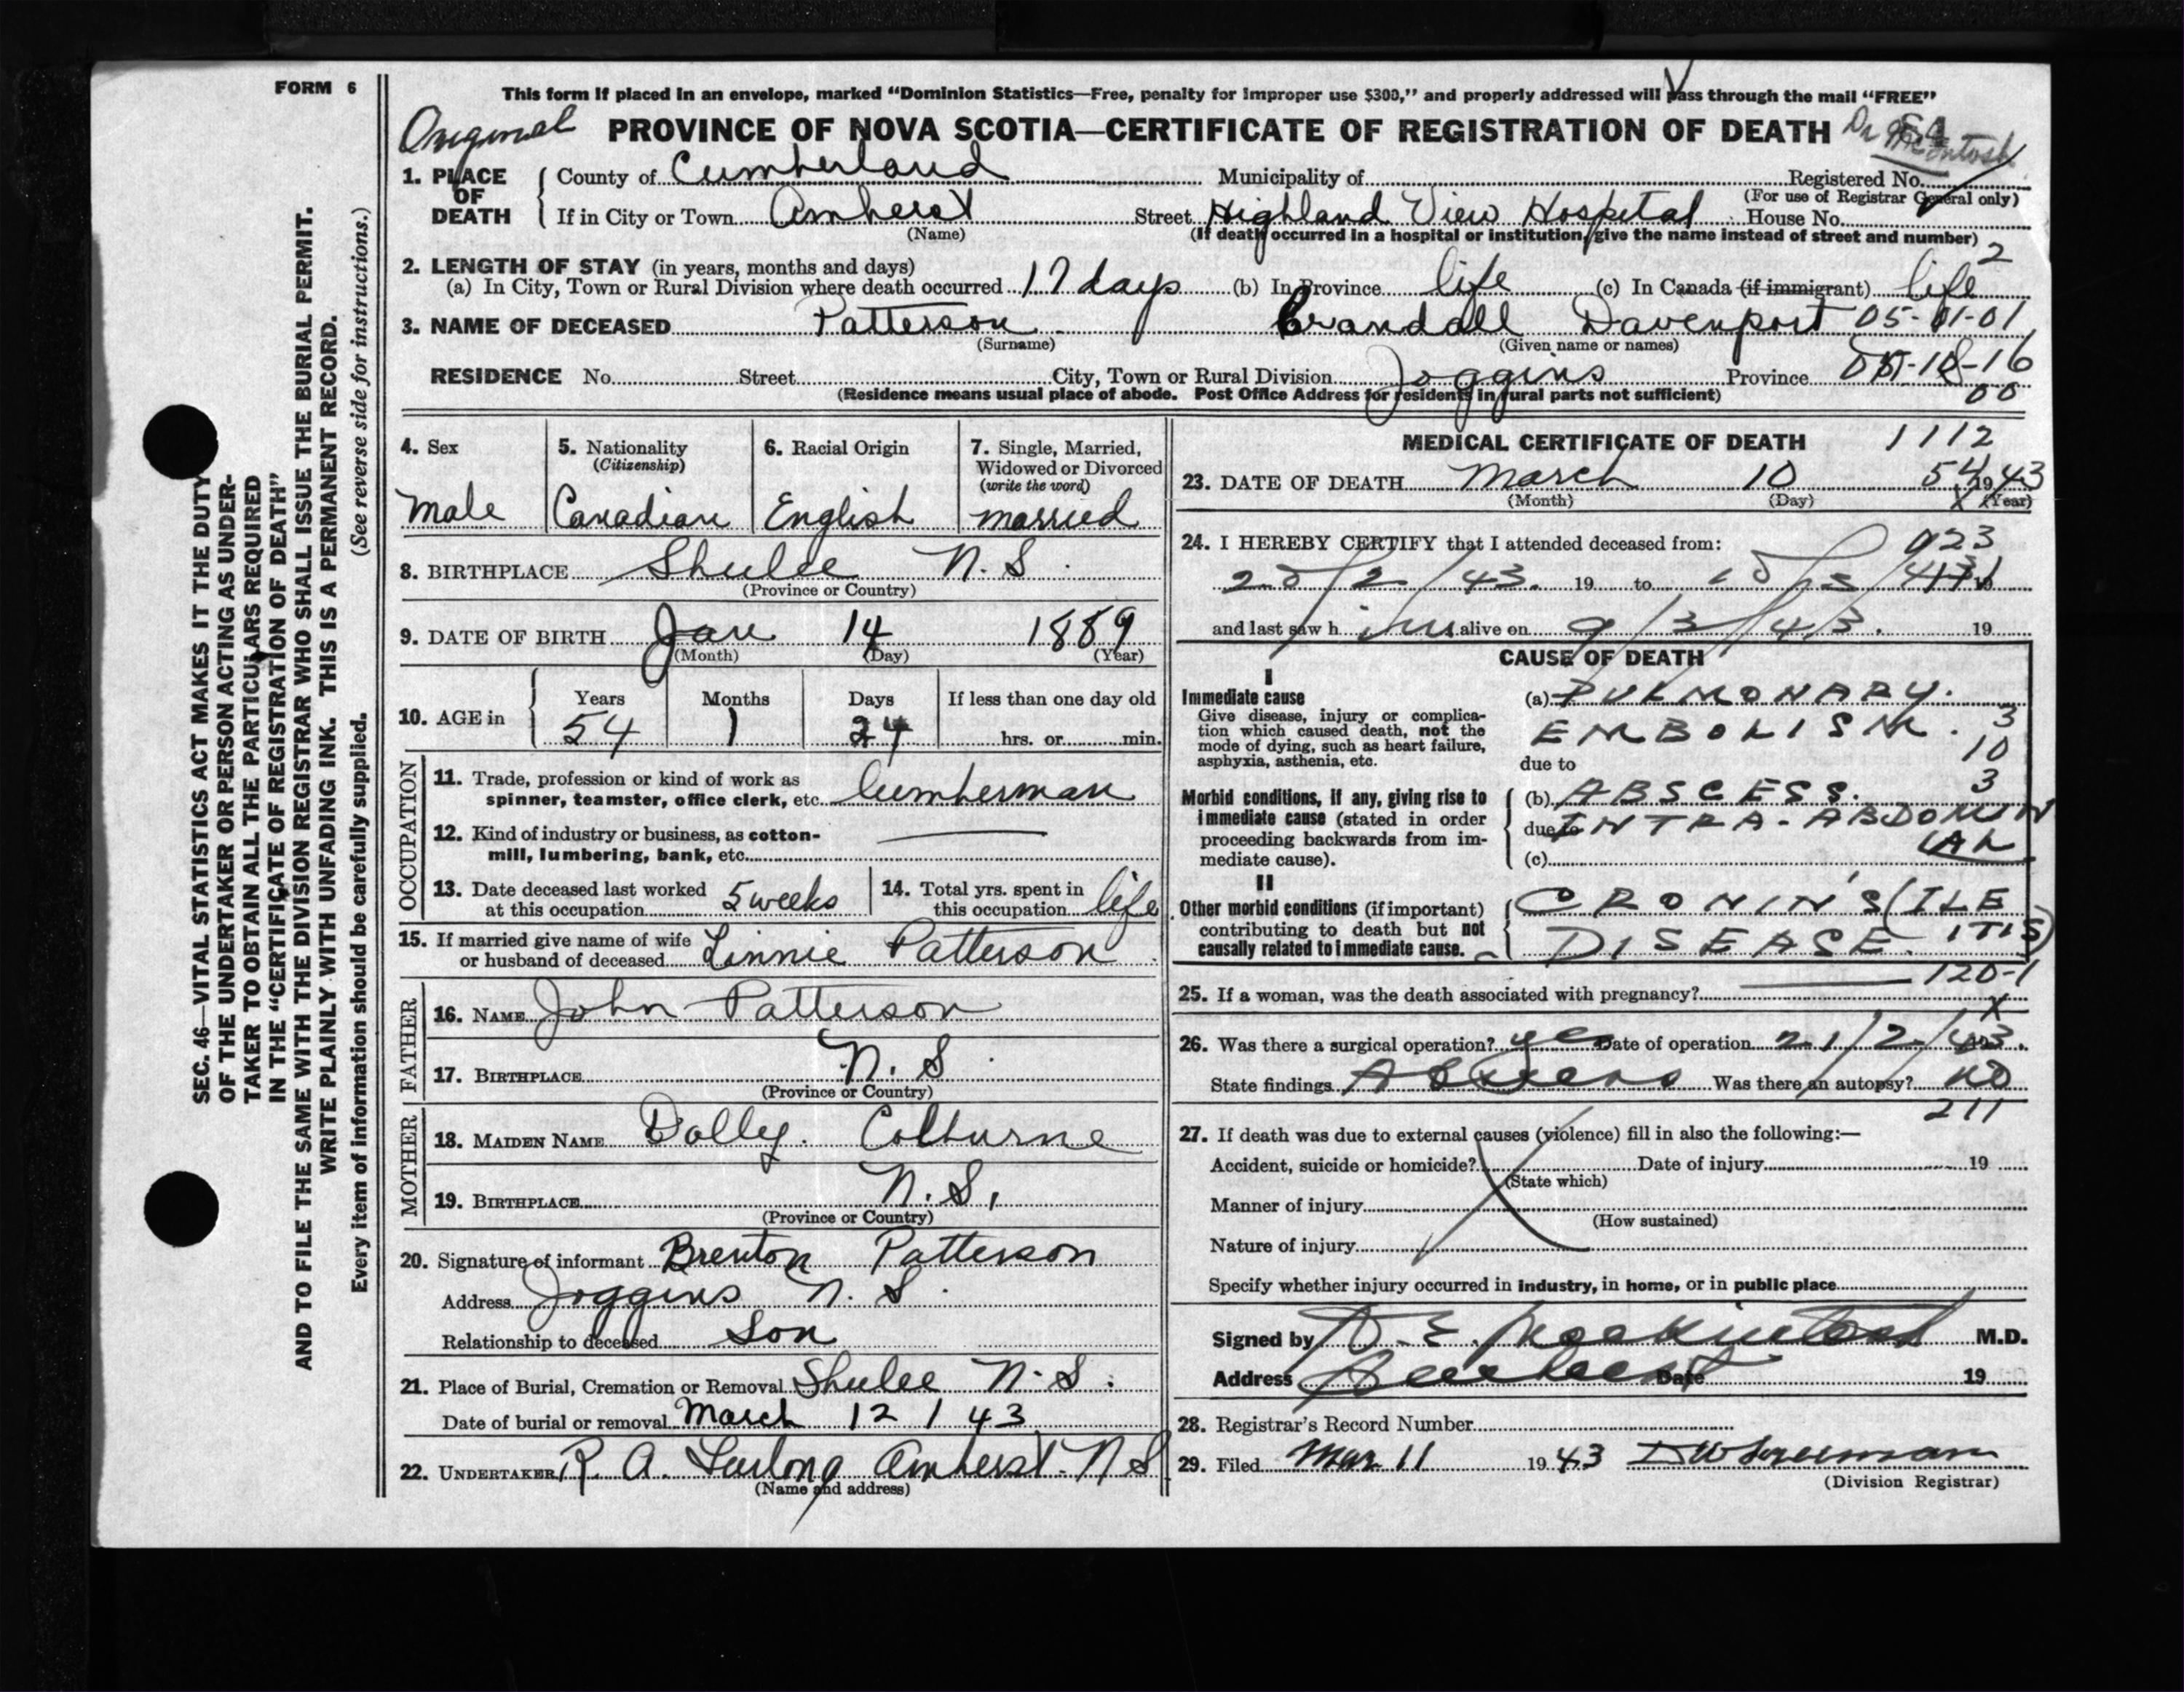 FORM 6
This form if placed in an envelope, marked "Dominion Statistics—Free, penalty for improper use $300," and properly addressed will pass through the mail "FREE"
Original PROVINCE OF NOVA SCOTIA—CERTIFICATE OF REGISTRATION OF DEATH Dr McIntosh
1. PLACE OF DEATH
County of Cumberland Municipality of Registered No.
(For use of Registrar General only)
If in City or Town Amherst Street Highland View Hospital House No.
(Name) (If death occurred in a hospital or institution, give the name instead of street and number)
2. LENGTH OF STAY (in years, months and days) 2
(a) In City, Town or Rural Division where death occurred 17 days (b) In Province life (c) In Canada (if immigrant) life
3. NAME OF DECEASED Patterson Crandall Davenport 05-01-01
(Surname) (Given name or names)
RESIDENCE No. Street City, Town or Rural Division Joggins Province
(Residence means usual place of abode. Post Office Address for residents in rural parts not sufficient) 00
SEC. 46—VITAL STATISTICS ACT MAKES IT THE DUTY
OF THE UNDERTAKER OR PERSON ACTING AS UNDER-
TAKER TO OBTAIN ALL THE PARTICULARS REQUIRED
IN THE "CERTIFICATE OF REGISTRATION OF DEATH"
AND TO FILE THE SAME WITH THE DIVISION REGISTRAR WHO SHALL ISSUE THE BURIAL PERMIT.
WRITE PLAINLY WITH UNFADING INK. THIS IS A PERMANENT RECORD.
Every item of information should be carefully supplied. (See reverse side for instructions.)
4. Sex
Male
5. Nationality
(Citizenship)
Canadian
6. Racial Origin
English
7. Single, Married,
Widowed or Divorced
(write the word)
married
8. BIRTHPLACE Shulee N.S.
(Province or Country)
9. DATE OF BIRTH Jan 14 1889
(Month) (Day) (Year)
10. AGE in
Years Months Days If less than one day old
54 1 24 hrs. or min.
OCCUPATION
11. Trade, profession or kind of work as
spinner, teamster, office clerk, etc. Lumberman
12. Kind of industry or business, as cotton-
mill, lumbering, bank, etc.
13. Date deceased last worked
at this occupation 5 weeks
14. Total yrs. spent in
this occupation life
15. If married give name of wife
or husband of deceased Linnie Patterson
FATHER
16. NAME John Patterson
17. BIRTHPLACE N.S.
(Province or Country)
MOTHER
18. MAIDEN NAME Dolly Colburne
19. BIRTHPLACE N.S.
(Province or Country)
20. Signature of informant Brenton Patterson
Address Joggins N.S.
Relationship to deceased Son
21. Place of Burial, Cremation or Removal Shulee N.S.
Date of burial or removal March 12/43
22. UNDERTAKER R. A. Furlong Amherst N S
(Name and address)
MEDICAL CERTIFICATE OF DEATH 1112
23. DATE OF DEATH March 10 54 1943
(Month) (Day) (Year)
24. I HEREBY CERTIFY that I attended deceased from: 923
20/2/43. 19 to 10/3/43 19
and last saw h im alive on 9/3/43. 19
CAUSE OF DEATH
I
Immediate cause
Give disease, injury or complica-
tion which caused death, not the
mode of dying, such as heart failure,
asphyxia, asthenia, etc.
(a) PULMONARY.
EMBOLISM. 3
10
due to
Morbid conditions, if any, giving rise to
immediate cause (stated in order
proceeding backwards from im-
mediate cause).
3
(b) ABSCESS.
due to INTRA-ABDOMIN
AL
(c)
II
Other morbid conditions (if important)
contributing to death but not
causally related to immediate cause.
CRONIN'S (ILE
DISEASE. ITIS)
120-1
25. If a woman, was the death associated with pregnancy?
X
26. Was there a surgical operation? yes Date of operation 21/2/43.
State findings Abscess Was there an autopsy? no
211
27. If death was due to external causes (violence) fill in also the following:—
Accident, suicide or homicide? Date of injury 19
(State which)
Manner of injury
(How sustained)
Nature of injury
Specify whether injury occurred in industry, in home, or in public place
Signed by D. E. Mackintosh M.D.
Address Amherst Date 19
28. Registrar's Record Number
29. Filed Mar 11 1943
(Division Registrar)